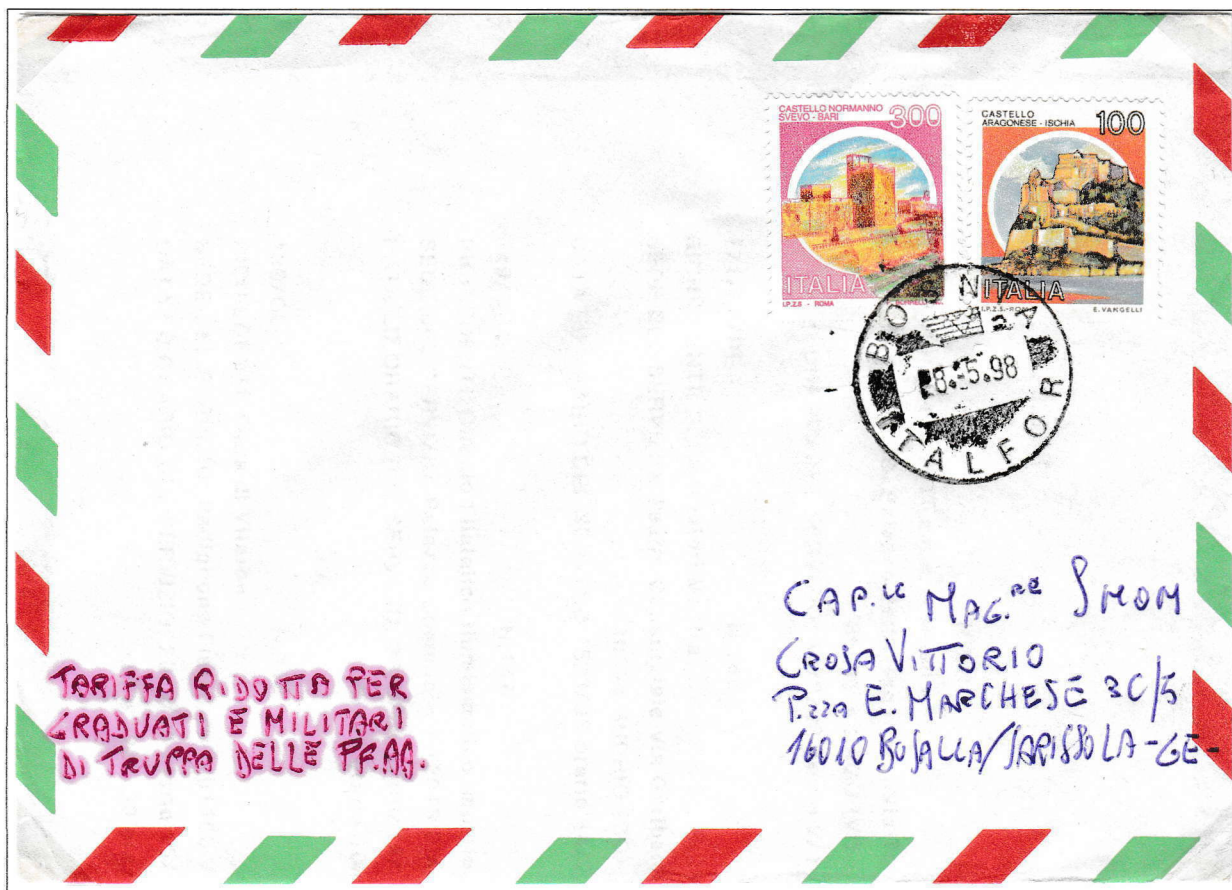 CASTELLO NORMANNO
SVEVO - BARI 300
ITALIA
I.P.Z.S. - ROMA
CASTELLO
ARAGONESE - ISCHIA 100
ITALIA
I.P.Z.S. - ROMA E. VANGELLI
BOSNIA
8.5.98
ITALFOR
CAP.LE MAG.RE SMOM
CROSA VITTORIO
P.zza E. MARCHESE 3C/5
16010 BUSALLA/SARISSOLA - GE -
TARIFFA RIDOTTA PER
GRADUATI E MILITARI
DI TRUPPA DELLE FF.AA.